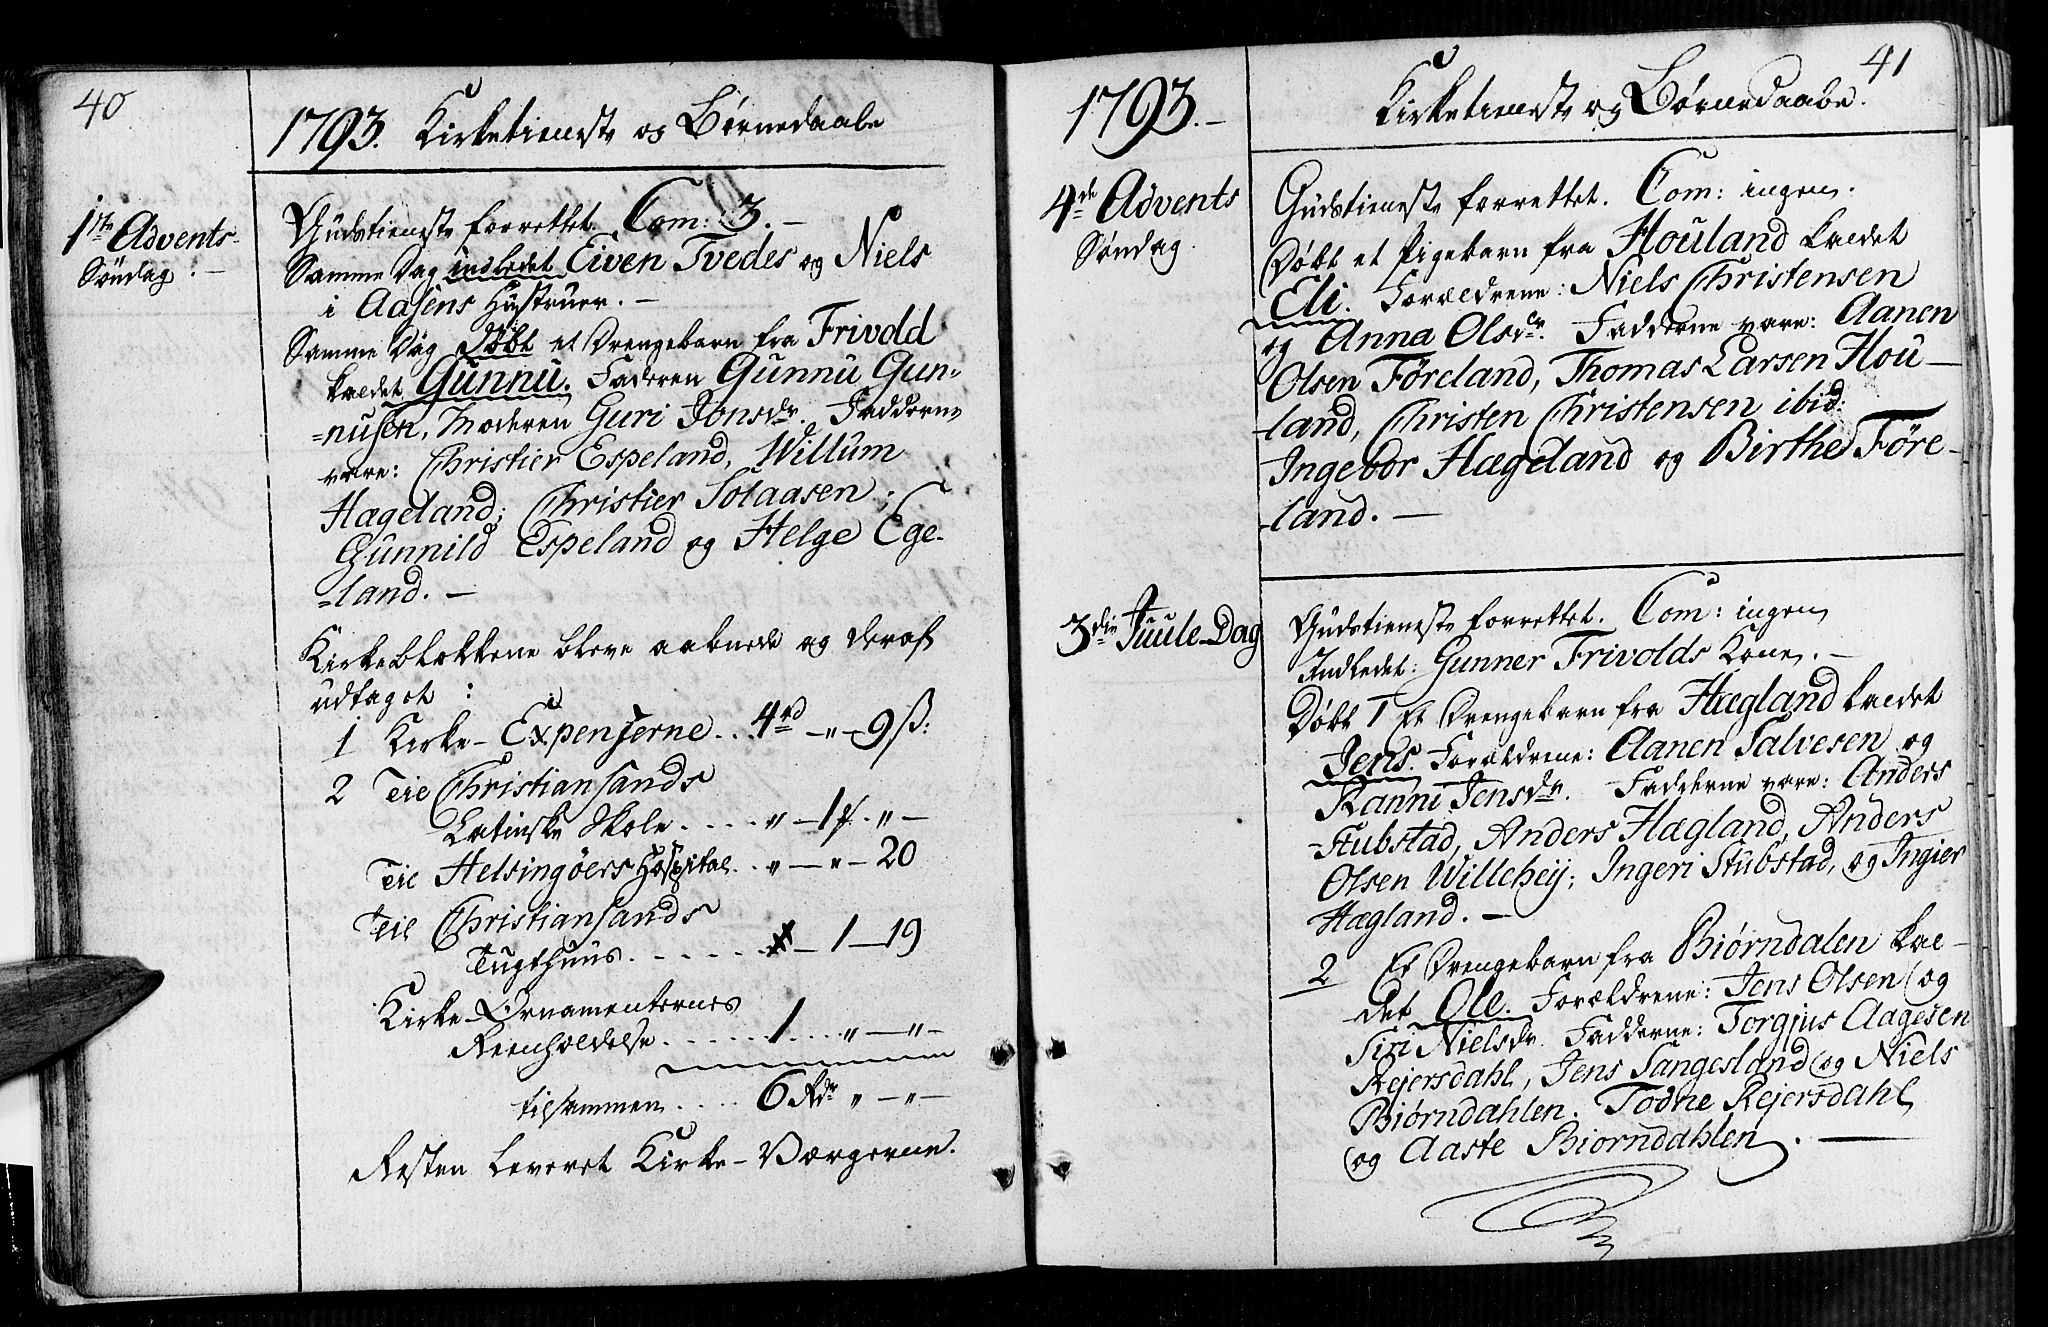 40
1793. Kirketieneste og Børnedaabe
1ste Advents-
Søndag. -
Gudstieneste forrettet. Com: 3. -
Samme Dag indledet Eiven Tvedes og Niels
i Aasens Hustruer. -
Samme Dag døbt et Drengebarn fra Frivold
kaldet Gunnu. Faderen Gunnu Gun-
=nusen, Moderen Guri Jonsdr. Fadderne
vare: Christier Espeland, Willum
Hægeland; Christier Solaasen;
Gunnild Espeland og Helge Ege-
=land. -
Kirkeblokkene bleve aabnede og deraf
udtaget:
1 Kirke-Expenserne .. 4rd - " - 9 ß:
2 Til Christiansands
Latinske Skole .... " - 1 . " -
Til Helsingøers Hospital .. " - " - 20
Til Christiansands
Tugthuus ...... - 1 - 19
Kirke-Ornamenternes
Reenholdelse ...... 1 ... " - " -
tilsammen .... 6 Rdr " - " -
Resten leveret Kirke-Værgerne.
41
1793. -
Kirketieneste og Børnedaabe.
4de Advents
Søndag.
Gudstieneste forrettet. Com: ingen.
Døbt et Pigebarn fra Houland kaldet
Eli. Forældrene: Niels Christensen
og Anna Olsdr. Fadderne vare: Aanen
Olsen Føreland, Thomas Larsen Hou-
-land, Christen Christensen ibid:
Ingebor Hægeland og Birthe Føre-
-land. -
3die Juule-Dag
Gudstieneste forrettet. Com: ingen
Indledet: Gunner Frivolds Kone. -
Døbt 1 Et Drengebarn fra Hægland kaldet
Jens. Forældrene: Aanen Salvesen og
Ranni Jensdr. Fadderne vare: Anders
Stubstad, Anders Hægland, Anders
Olsen Willeheij; Ingeri Stubstad, og Ingier
Hægland. -
2 Et Drengebarn fra Biørndalen kal-
det Ole. Forældrene: Jens Olsen og
Siri Nielsdr. Fadderne: Torgius Aagesen
Rejersdahl, Jens Sangesland og Niels
Biørndahlen. Todne Rejersdahl
og Aaste Biorndahlen. -